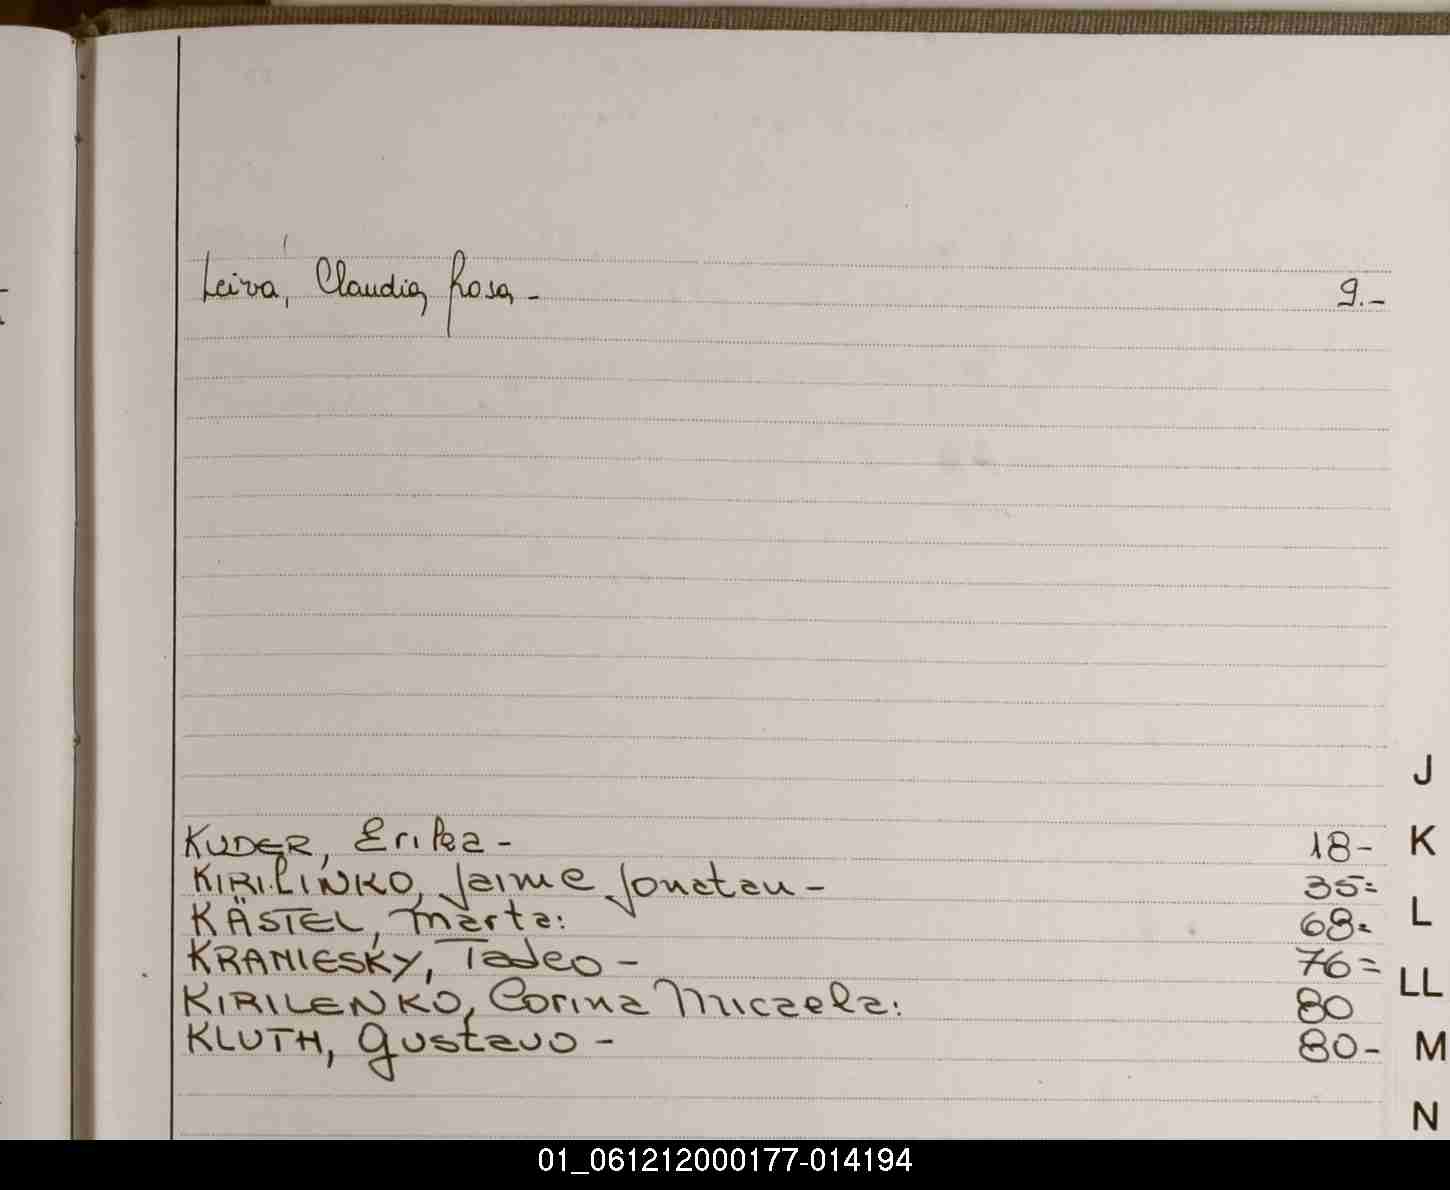 Leiva, Claudia Rosa - 9.-
J
KUDER, Erika - 18- K
KIRILINKO, Jaime Jonatan - 35=
KÄSTEL, Marta: 68= L
KRANIESKY, Tadeo - 76=
LL
KIRILENKO, Corina Micaela: 80
KLUTH, Gustavo - 80- M
N
01_061212000177-014194